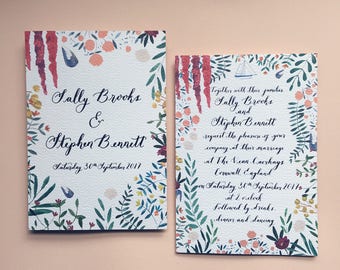 Sally Brooks
&
Stephen Bennett
Saturday 30th September 2017
Together with their families
Sally Brooks
and
Stephen Bennett
request the pleasure of your
company at their marriage
at The Nean Carthays
Cornwall England
Saturday 30th September 2017
at 2 o'clock
Followed by drinks,
dinner and dancing